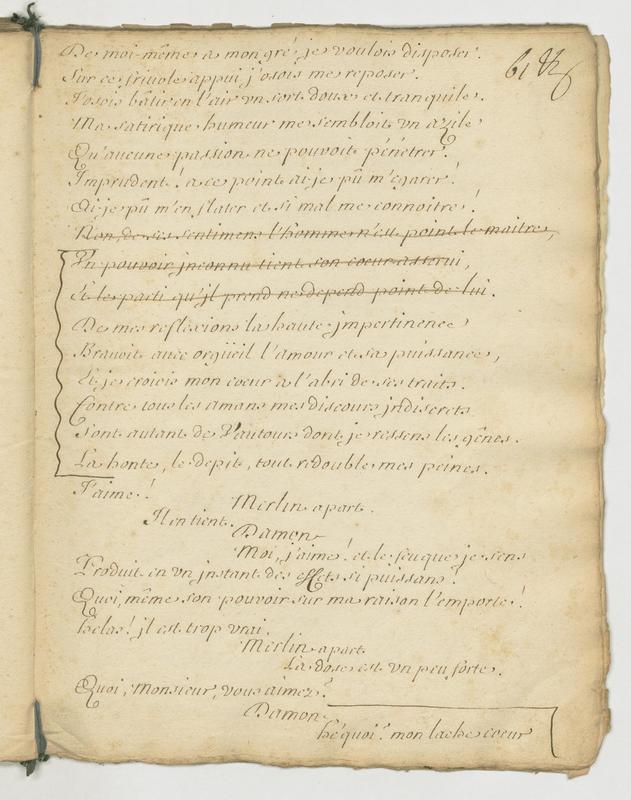 De moi-même a mon gré je voulois disposer.
Sur ce frivole appui j'osois me reposer.
J'osois bâtir en l'air vn sort doux et tranquile.
Ma satirique humeur me sembloit vn azile
Qu'aucune passion ne pouvoit pénétrer.
Imprudent! a ce point ai-je pû m'egarer!
Ai-je pû m'en flater et si mal me connoitre!
Non, de ses sentimens l'homme n'est point le maitre,
Vn pouvoir jnconnu tient son coeur asservi,
et le parti qu'jl prend ne depend point de lui.
De mes reflexions la haute jmpertinence
Bravoit avec orgüeil l'amour et sa puissance,
Et je croiois mon coeur a l'abri de ses traits.
Contre tous les amans mes discours jndiscrets
Sont autant de Vautours dont je ressens les gênes.
La honte, le depit, tout redouble mes peines.
J'aime!
Merlin apart.
Il en tient.
Damon
Moi, j'aime! et le feu que je sens
Produit en vn jnstant des effets si puissans!
Quoi, même son pouvoir sur ma raison l'emporte!
helas! jl est trop vrai.
Merlin apart
La dose est vn peu forte.
Quoi, Monsieur, vous aimez?
Damon
hé quoi? mon lache coeur